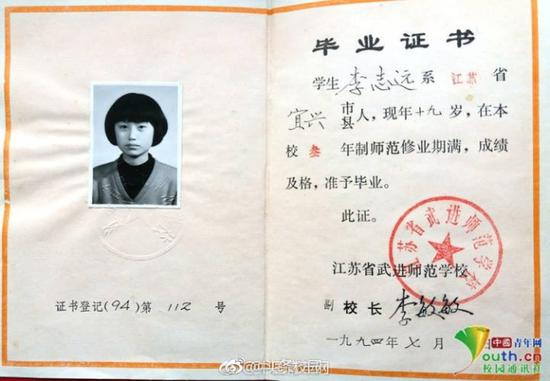 证书登记(94)第 112 号
毕业证书
学生 李志远 系 江苏 省
宜兴 市县人，现年十九岁，在本
校 叁 年制师范修业期满，成绩
及格，准予毕业。
此证。
江苏省武进师范学校
江苏省武进师范学校
副 校长 李敏敏
一九九四年七月
中国青年网
youth.cn
校园通讯社